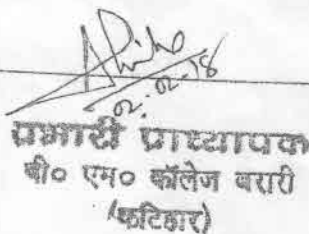 2.02.18
प्रभारी प्राध्यापक
बी० एम० कॉलेज बरारी
(कटिहार)